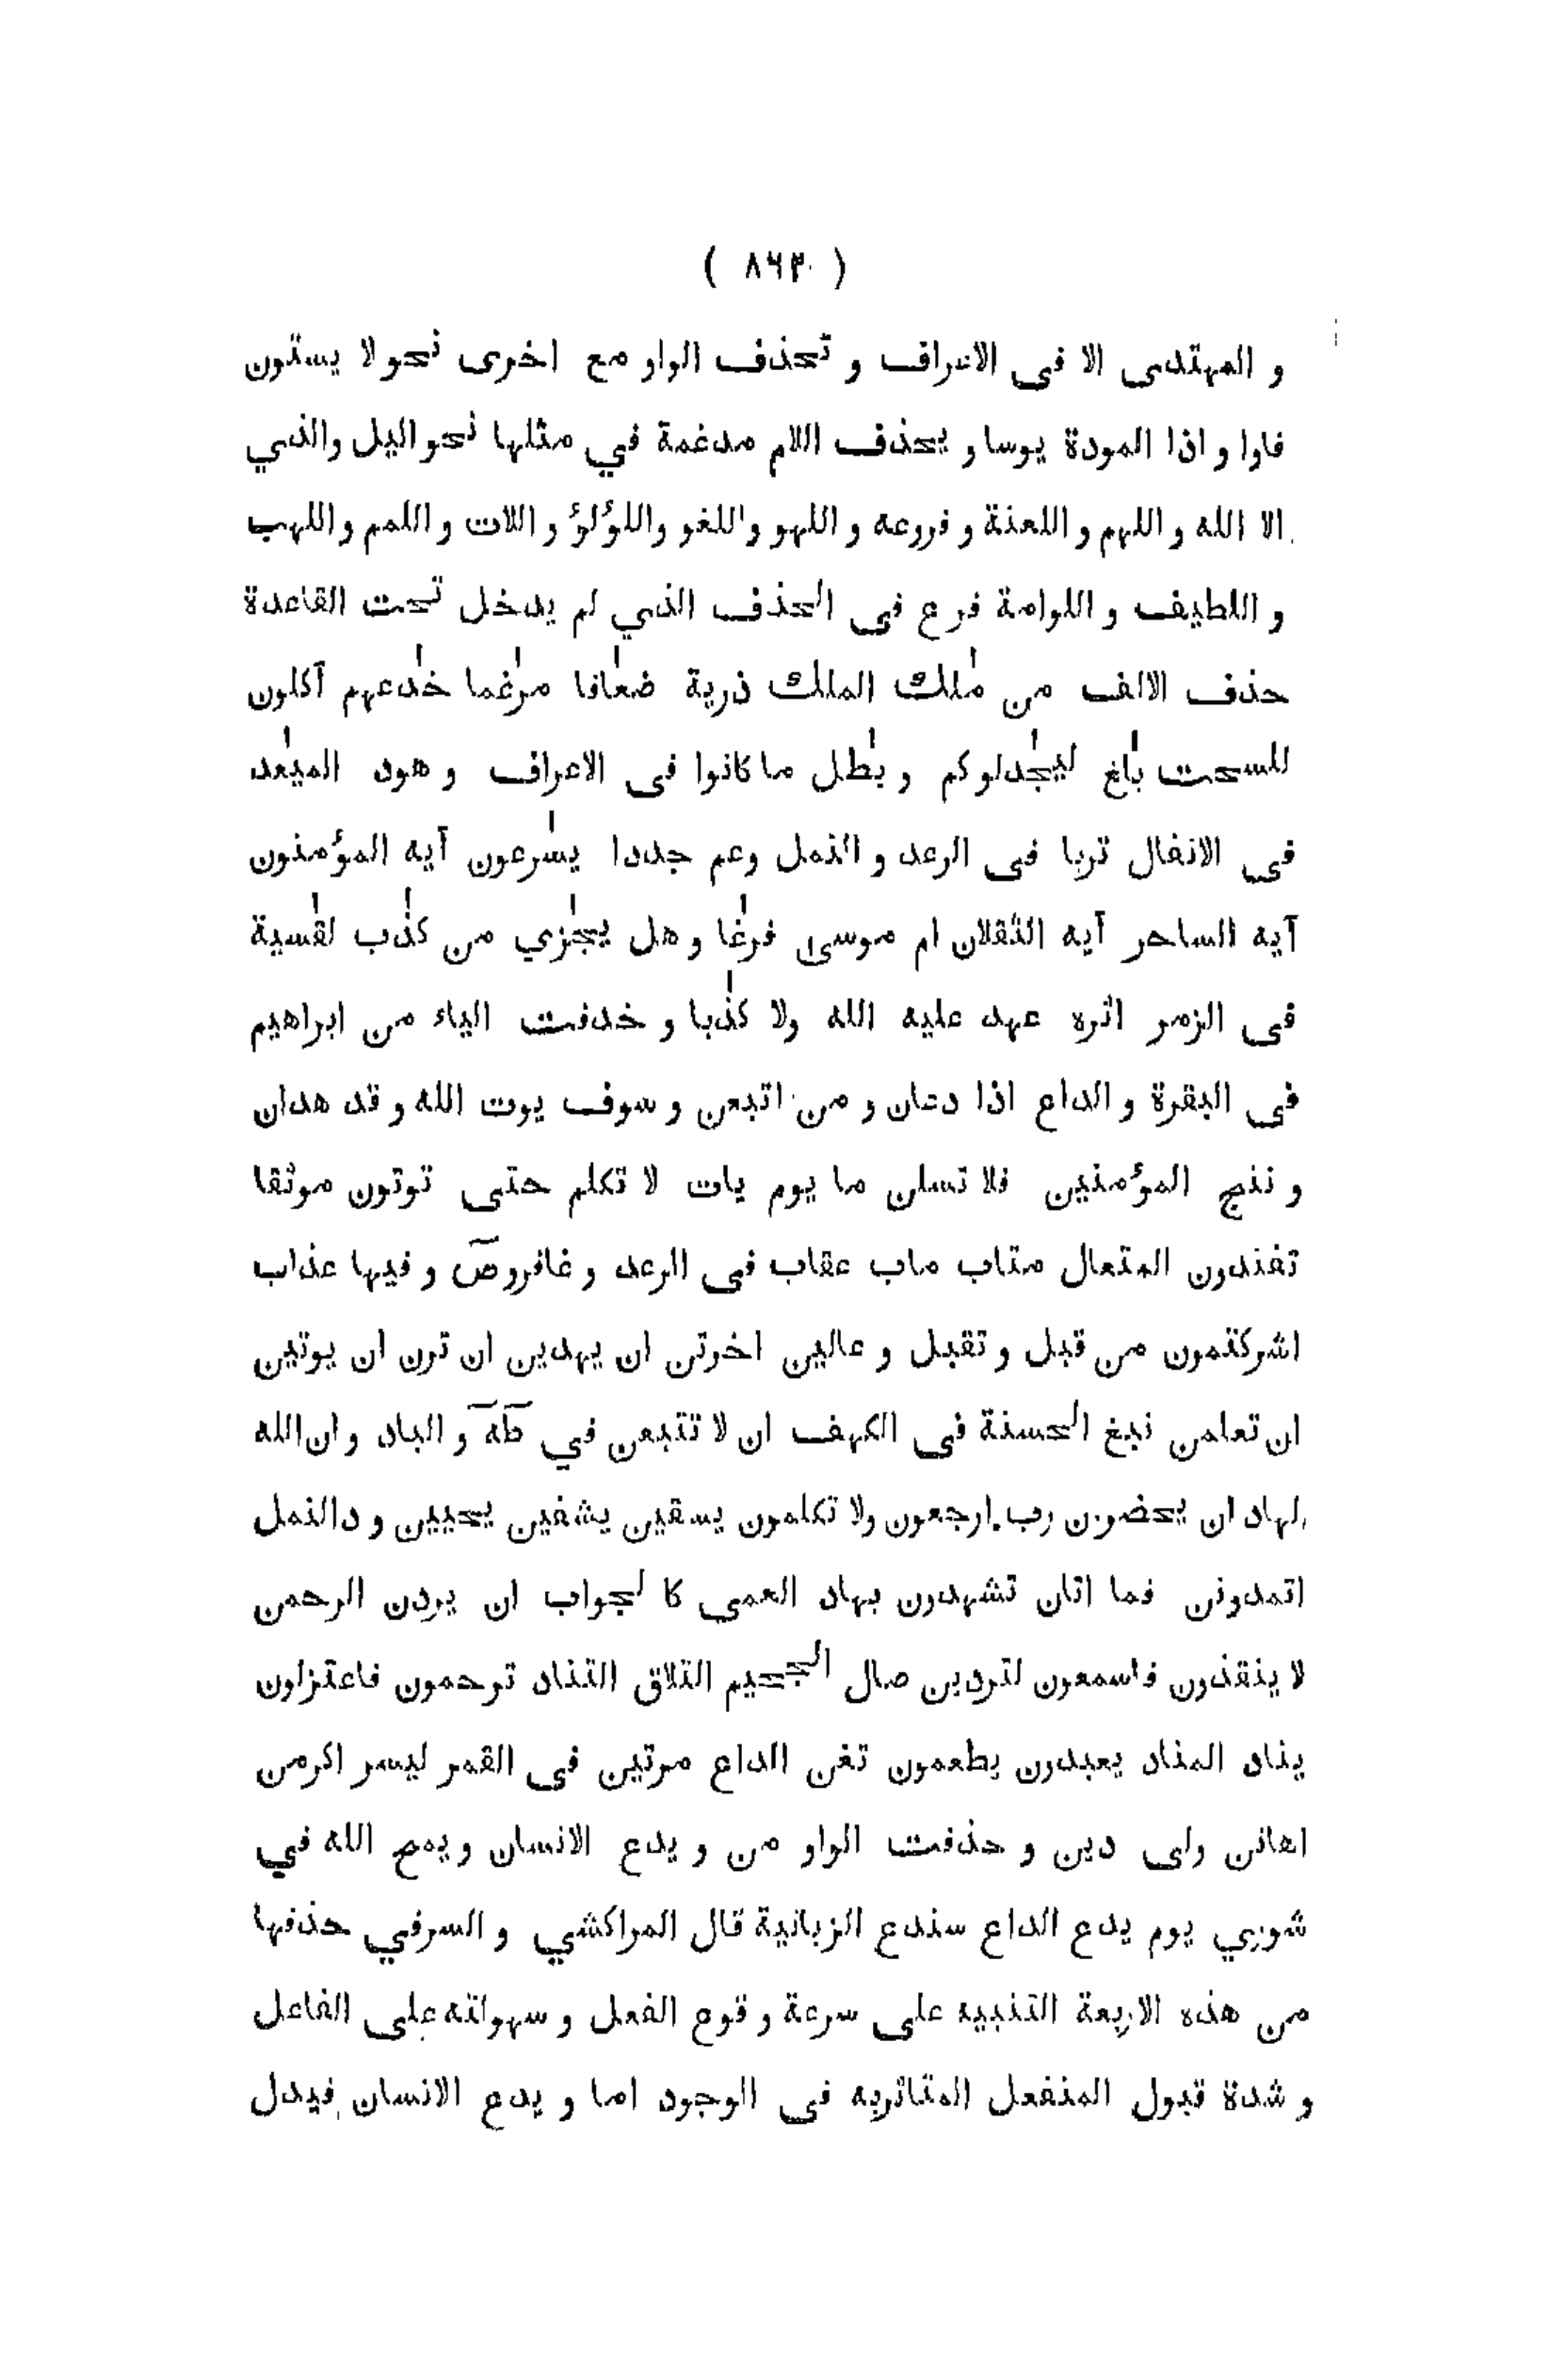 ( ٨٦٣ )
و المهتدى الا فى الاعراف و تحذف الواو مع اخرى نحو لا يستون
فاوا و اذا المودة يوسا و يحذف اللام مدغمة في مثلها نحو اليل والذي
الا الله و اللهم و اللعنة و فروعه و اللهو واللغو واللؤلؤ و اللات و اللمم و اللهب
و اللطيف و اللوامة فرع فى الحذف الذي لم يدخل تحت القاعدة
حذف الالف من مٰلك الملك ذرية ضعٰافا مرٰغما خٰدعهم آكلون
للسحت بٰلغ ليجٰدلوكم و بٰطل ما كانوا فى الاعراف و هود الميعٰد
فى الانفال تربا فى الرعد و النمل وعم جددا يسٰرعون آيه المؤمنون
آيه الساحر آيه الثقلان ام موسىٰ فرٰغا و هل يجٰزي من كٰذب لقٰسية
فى الزمر اثره عهد عليه الله ولا كذٰبا و خدفت الياء من ابراهيم
فى البقرة و الداع اذا دعان و من اتبعن و سوف يوت الله و قد هدان
و ننج المؤمنين فلا تسلن ما يوم يات لا تكلم حتى توتون موثقا
تفندون المتعال متاب ماب عقاب فى الرعد و غافروصٓ و فيها عذاب
اشركتمون من قبل و تقبل و عالين اخرتن ان يهدين ان ترن ان يوتين
ان تعلمن نبغ الحسنة فى الكهف ان لا تتبعن في طٓهٓ و الباد و ان الله
لهاد ان يحضرون رب ارجعون ولا تكلمون يسقين يشفين يحيين و دالنمل
اتمدونن فما اتان تشهدون بهاد العمى كا لجواب ان يردن الرحمن
لا ينقذون فاسمعون لتردين صال الجحيم التلاق التناد ترحمون فاعتزلون
يناد المناد يعبدون يطعمون تغن الداع مرتين فى القمر ليسر اكرمن
اهانن ولى دين و حذفت الواو من و يدع الانسان و يمح الله في
شوري يوم يدع الداع سندع الزبانية قال المراكشي و السرفي حذفها
من هذه الاربعة التنبيه على سرعة وقوع الفعل و سهولته على الفاعل
و شدة قبول المنفعل المتاثربه فى الوجود اما و يدع الانسان فيدل